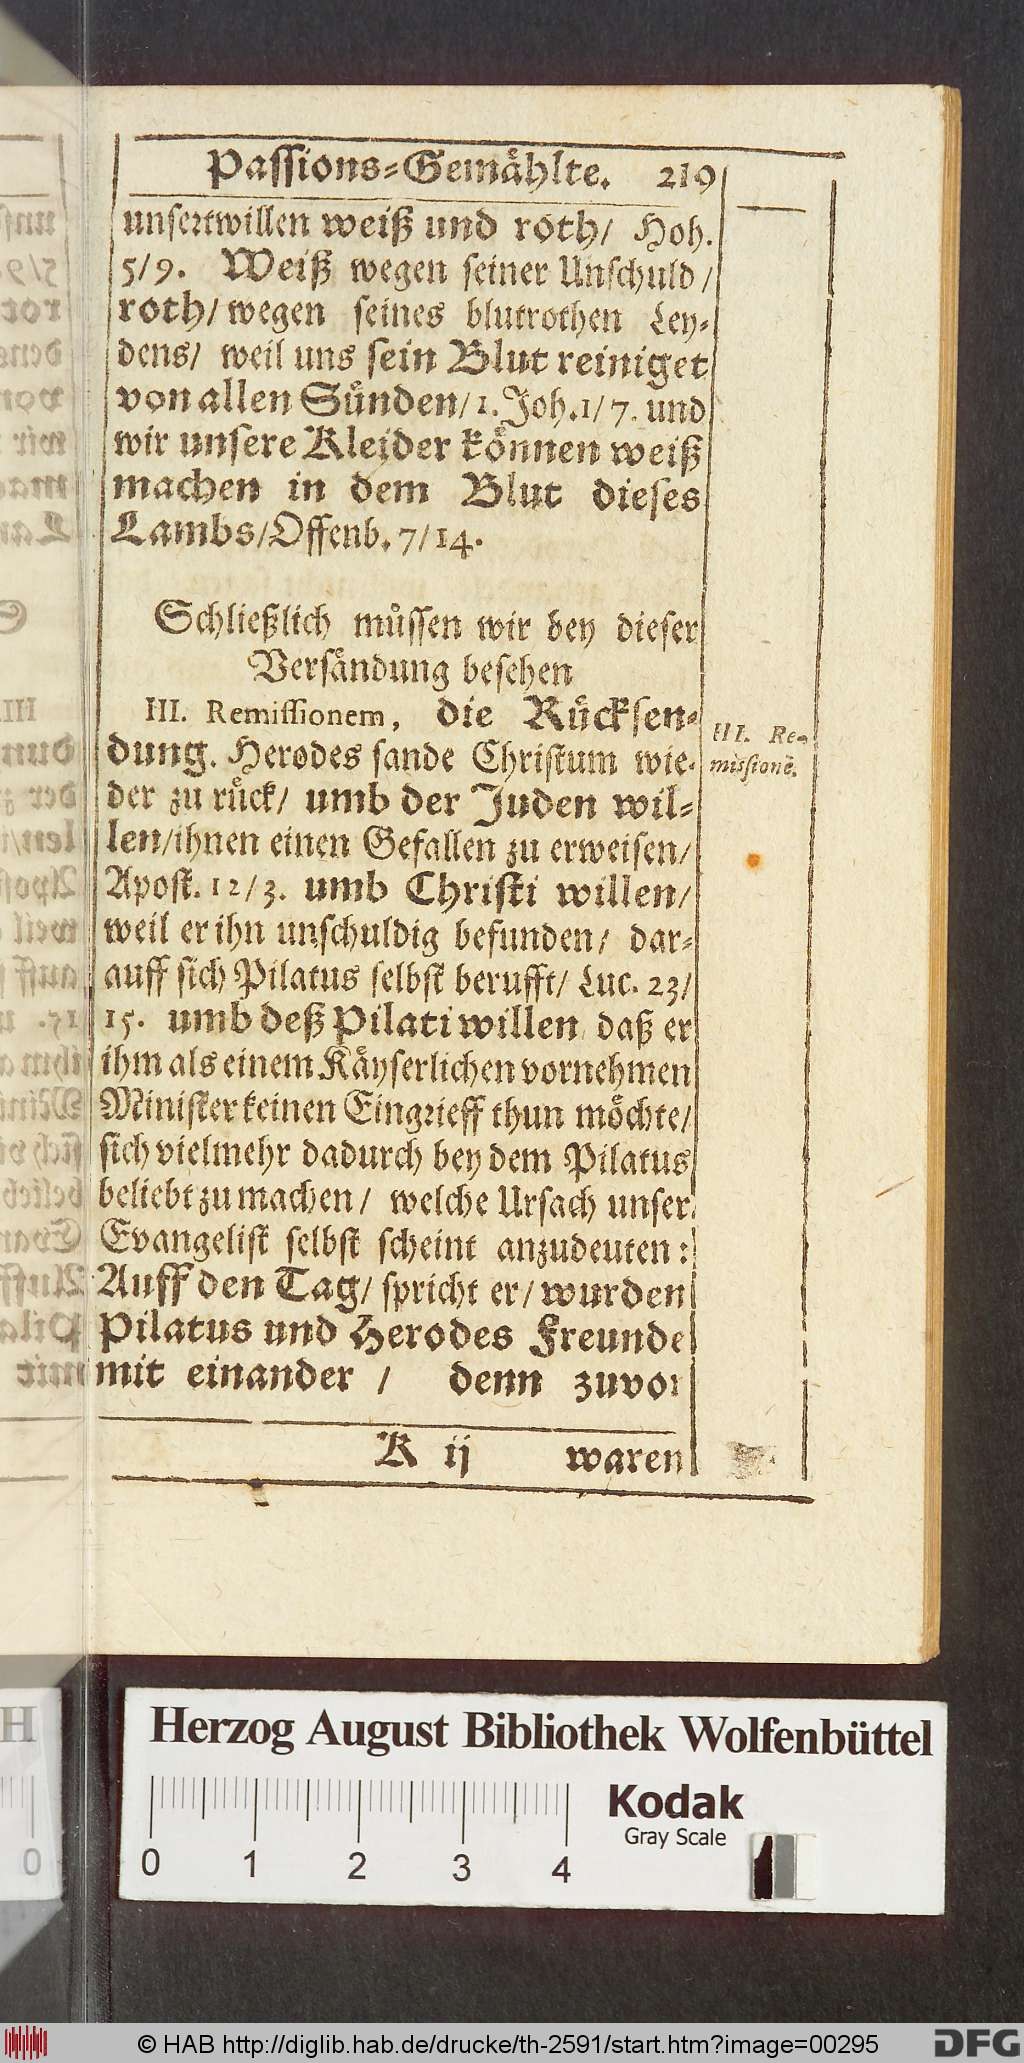 Passions-Gemählte. 219
unsertwillen weiß und roth/ Hoh.
5/9. Weiß wegen seiner Unschuld/
roth/ wegen seines blutrothen Ley-
dens/ weil uns sein Blut reiniget
von allen Sünden/ 1. Joh. 1/7. und
wir unsere Kleider können weiß
machen in dem Blut dieses
Lambs/ Offenb. 7/14.
Schließlich müssen wir bey dieser
Versändung besehen
III. Remissionem, die Rücksen-
dung. Herodes sande Christum wie-
der zu rück/ umb der Juden wil-
len/ ihnen einen Gefallen zu erweisen/
Apost. 12/3. umb Christi willen/
weil er ihn unschuldig befunden/ dar-
auff sich Pilatus selbst berufft/ Luc. 23/
15. umb deß Pilati willen daß er
ihm als einem Käyserlichen vornehmen
Minister keinen Eingrieff thun möchte/
sich vielmehr dadurch bey dem Pilatus
beliebt zu machen/ welche Ursach unser
Evangelist selbst scheint anzudeuten:
Auff den Tag/ spricht er/ wurden
Pilatus und Herodes Freunde
mit einander / denn zuvor
K ij waren
III. Re-
missionē.
Herzog August Bibliothek Wolfenbüttel
Kodak
Gray Scale
0 1 2 3 4
© HAB http://diglib.hab.de/drucke/th-2591/start.htm?image=00295
DFG